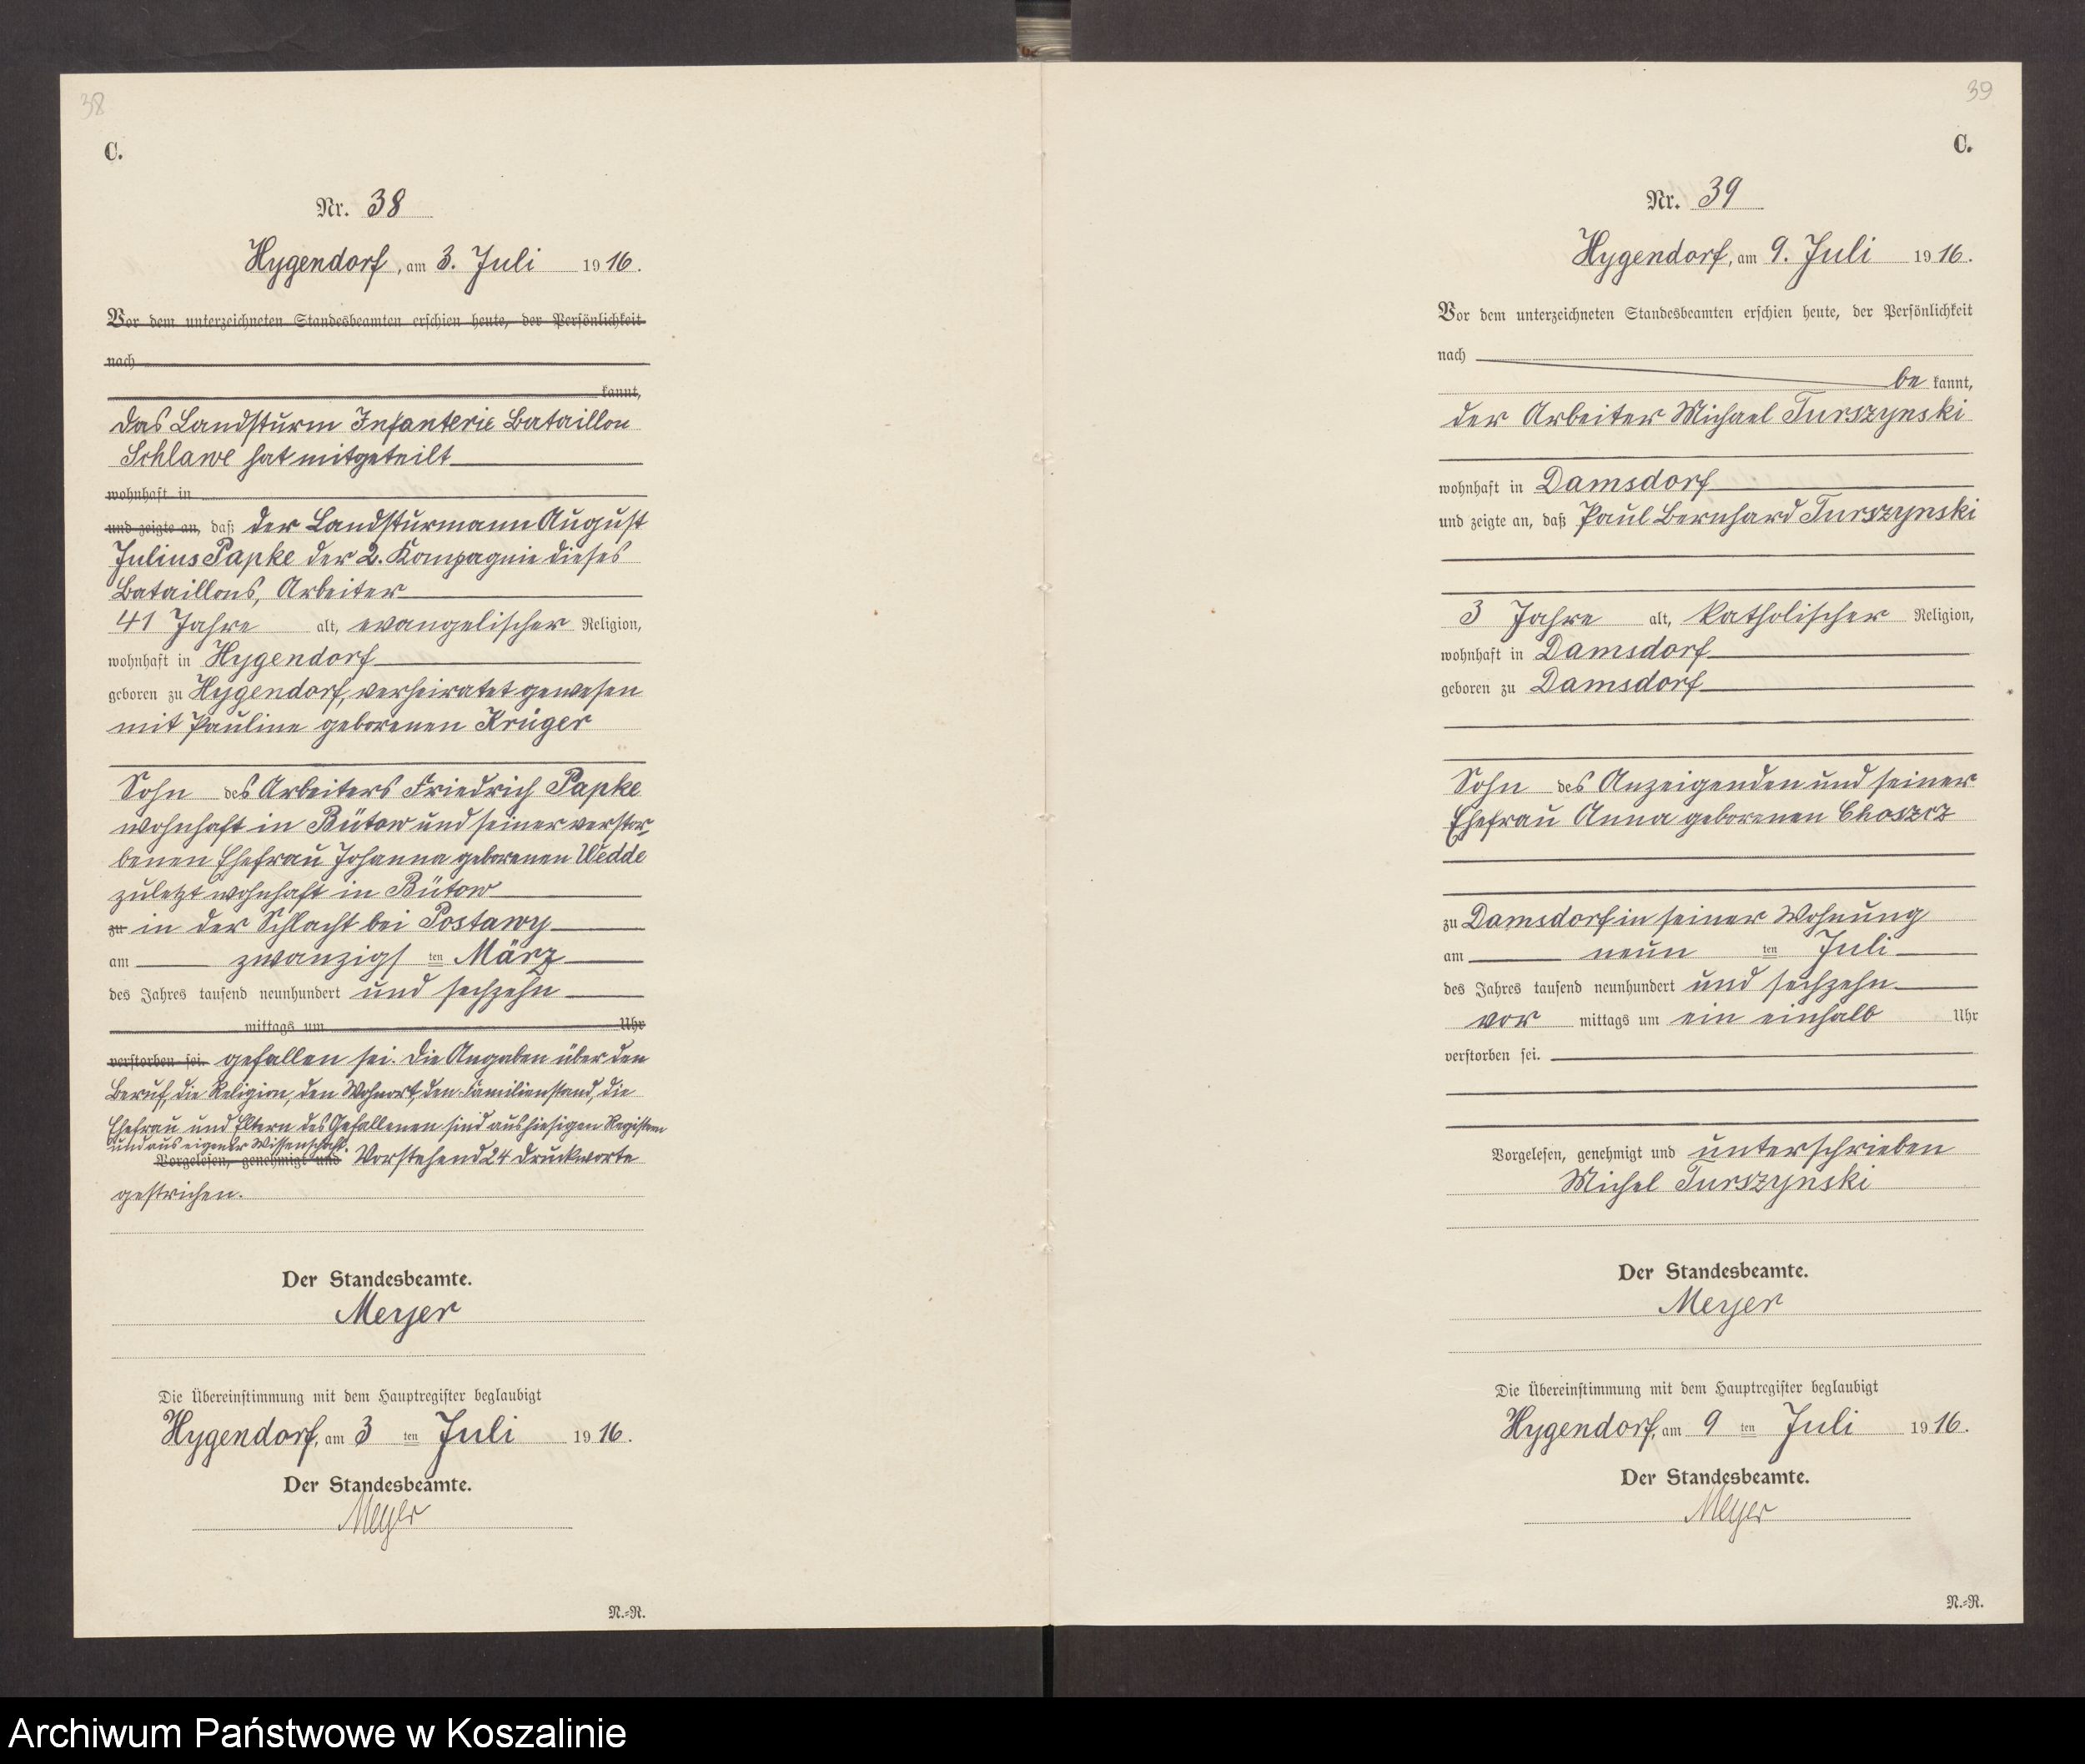 38
C.
Nr. 38
Hygendorf, am 3. Juli 1916.
Vor dem unterzeichneten Standesbeamten erschien heute, der Persönlichkeit
nach
kannt,
das Landsturm Infanterie Bataillon
Schlawe hat mitgeteilt
wohnhaft in
und zeigte an, daß der Landsturmann August
Julius Papke der 2. Kompagnie dieses
Bataillons, Arbeiter
41 Jahre alt, evangelischer Religion,
wohnhaft in Hygendorf
geboren zu Hygendorf, verheiratet gewesen
mit Pauline geborenen Krüger
Sohn des Arbeiters Friedrich Papke
wohnhaft in Bütow und seiner verstor-
benen Ehefrau Johanna geborenen Wedde
zuletzt wohnhaft in Bütow
zu in der Schlacht bei Postawy
am zwanzigsten März
des Jahres tausend neunhundert und sechzehn
mittags um Uhr
verstorben sei. gefallen sei. Die Angaben über den
Beruf, die Religion, den Wohnort, den Familienstand, die
Ehefrau und Eltern des Gefallenen sind aus hiesigen Registern
und aus eigener Wissenschaft.
Vorgelesen, genehmigt und Vorstehend 24 Druckworte
gestrichen.
Der Standesbeamte.
Meyer
Die Übereinstimmung mit dem Hauptregister beglaubigt
Hygendorf, am 3 ten Juli 1916.
Der Standesbeamte.
Meyer
N.-R.
39
C.
Nr. 39
Hygendorf, am 9. Juli 1916.
Vor dem unterzeichneten Standesbeamten erschien heute, der Persönlichkeit
nach
be kannt,
der Arbeiter Michael Turszynski
wohnhaft in Damsdorf
und zeigte an, daß Paul Bernhard Turszynski
3 Jahre alt, katholischer Religion,
wohnhaft in Damsdorf
geboren zu Damsdorf
Sohn des Anzeigenden und seiner
Ehefrau Anna geborenen Choszcz
zu Damsdorf in seiner Wohnung
am neun ten Juli
des Jahres tausend neunhundert und sechzehn
vor mittags um ein einhalb Uhr
verstorben sei.
Vorgelesen, genehmigt und unterschrieben
Michel Turszynski
Der Standesbeamte.
Meyer
Die Übereinstimmung mit dem Hauptregister beglaubigt
Hygendorf, am 9 ten Juli 1916.
Der Standesbeamte.
Meyer
N.-R.
Archiwum Państwowe w Koszalinie